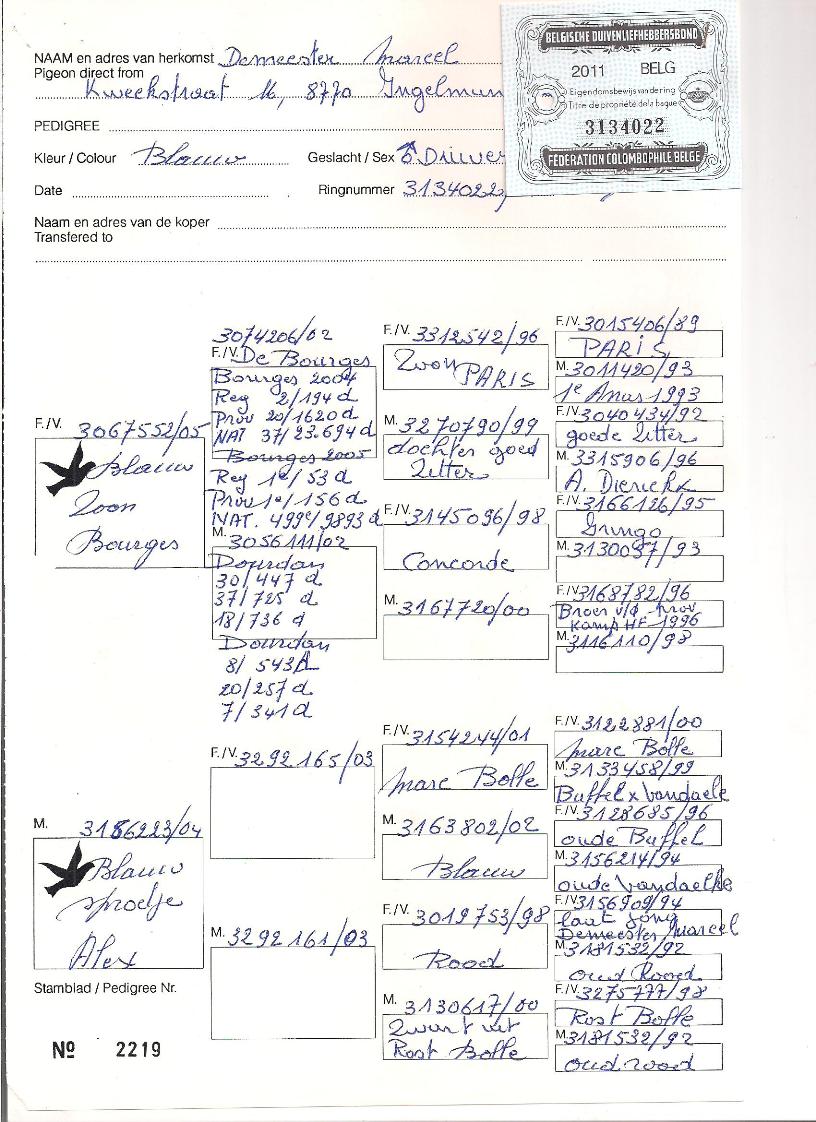 NAAM en adres van herkomst Demeester Marcel
Pigeon direct from
Kweekstraat 16, 8770 Ingelmun
BELGISCHE DUIVENLIEFHEBBERSBOND
2011 BELG
Eigendomsbewijs van de ring
Titre de propriété de la bague
3134022
FÉDÉRATION COLOMBOPHILE BELGE
PEDIGREE
Kleur / Colour Blauw
Geslacht / Sex ♂ Duiver
Date
Ringnummer 3134022
Naam en adres van de koper
Transfered to
F./V. 3067552/05
Blauw
Zoon
Bourges
3074206/02
F./V. De Bourges
Bourges 2004
Reg 2/194 d
Prov 20/1620 d
NAT 37/23.694 d
Bourges 2005
Reg 1e/53 d
Prov 1e/156 d
NAT. 499e/9893 d
M. 3056111/02
Dourdan
30/447 d
37/725 d
18/736 d
Dourdan
8/543 d
20/257 d
7/341 d
F./V. 3312542/96
Zoon PARIS
M. 3270790/99
dochter goed
Zitter
F./V. 3145096/98
Concorde
M. 3167720/00
F./V. 3015406/89
PARIS
M. 3011420/93
1e Anus 1993
F./V. 3040434/92
goede Zitter
M. 3315906/96
A. Dierickx
F./V. 3166126/95
Gringo
M. 3130057/93
F./V. 3168782/96
Broer v/d prov
Kamp HF 1996
M. 3116110/98
M. 3156223/04
Blauw
sproetje
Alex
F./V. 3292165/03
M. 3292161/03
F./V. 3154244/01
Marc Bolle
M. 3163802/02
Blauw
F./V. 3019753/98
Rood
M. 3130617/00
Zwart uit
Rost Bolle
F./V. 3122881/00
Marc Bolle
M. 3133458/99
Buffel x Vandaele
F./V. 3128685/96
oude Buffel
M. 3156214/94
oude Vandaele
F./V. 3156909/94
laat jong
Demeester Marcel
M. 3181532/92
oud Rood
F./V. 3275777/98
Rost Bolle
M. 3181532/92
oud rood
Stamblad / Pedigree Nr.
Nº 2219